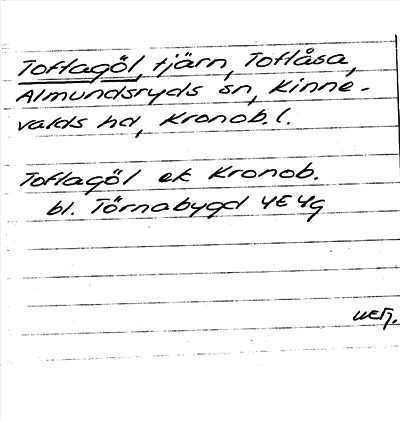 Toftagöl, tjärn, Toftåsa,
Almundsryds sn, Kinne-
valds hd, Kronob. l.
Toftagöl ek Kronob.
bl. Törnabygd 4E4g